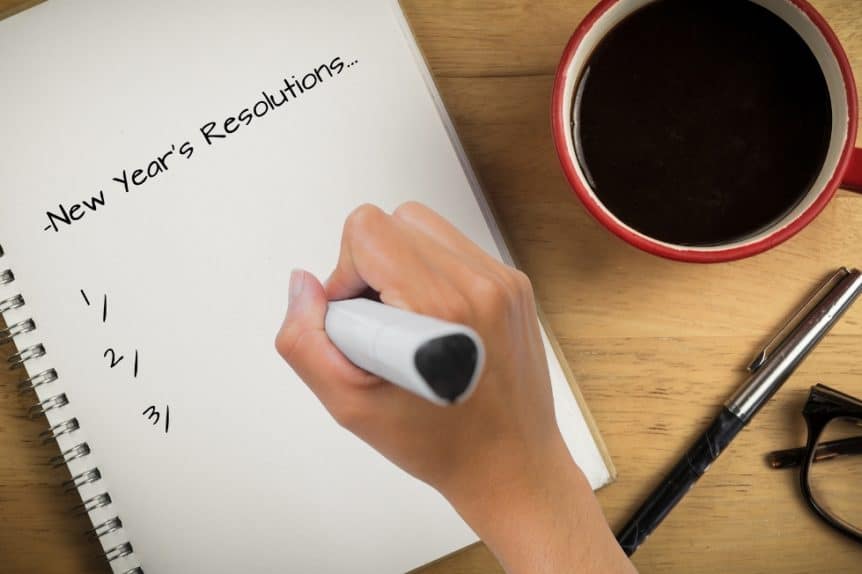 -New Year's Resolutions...
1/
2/
3/